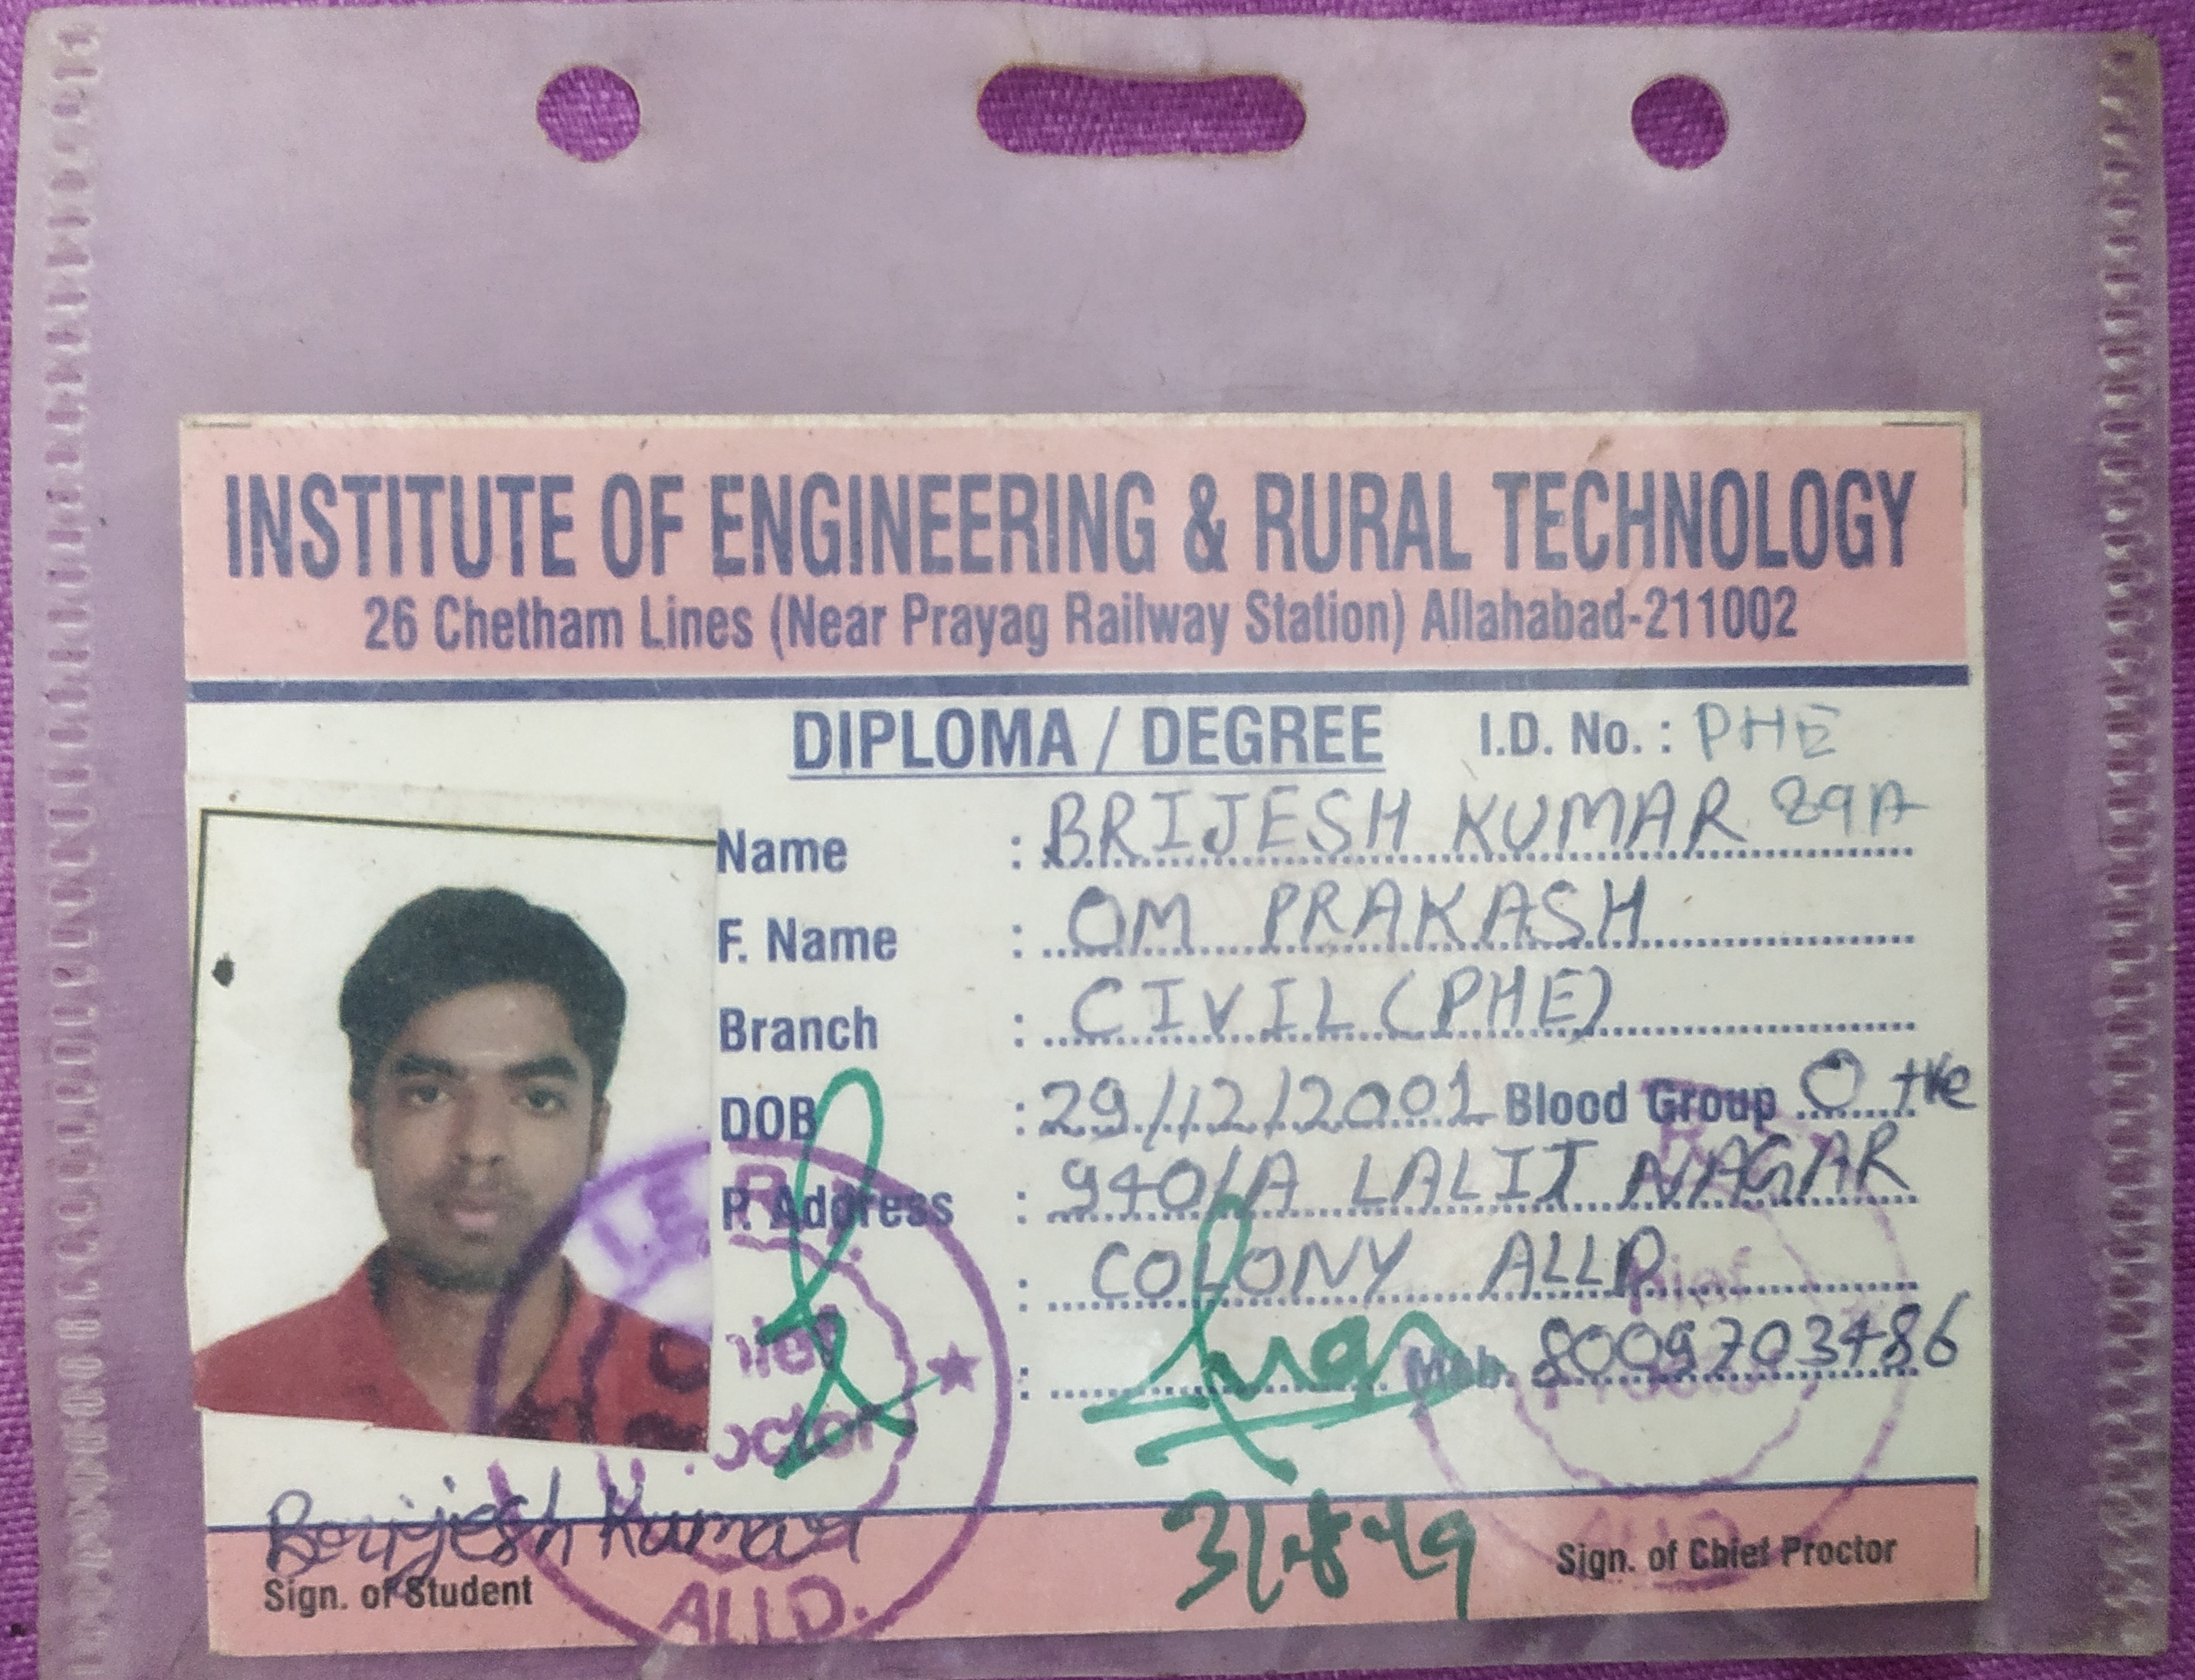 INSTITUTE OF ENGINEERING & RURAL TECHNOLOGY
26 Chetham Lines (Near Prayag Railway Station) Allahabad-211002
DIPLOMA / DEGREE I.D. No. : PHE
Name : BRIJESH KUMAR 89A
F. Name : OM PRAKASH
Branch : CIVIL (PHE)
DOB : 29/12/2001 Blood Group O +ve
P. Address : 940/A LALIT NAGAR
: COLONY ALLD
: Mob. 8009703486
I.E.R.T.
Chief
Proctor
ALLD.
Brijesh Kumar
Sign. of Student
31.8.19
Sign. of Chief Proctor